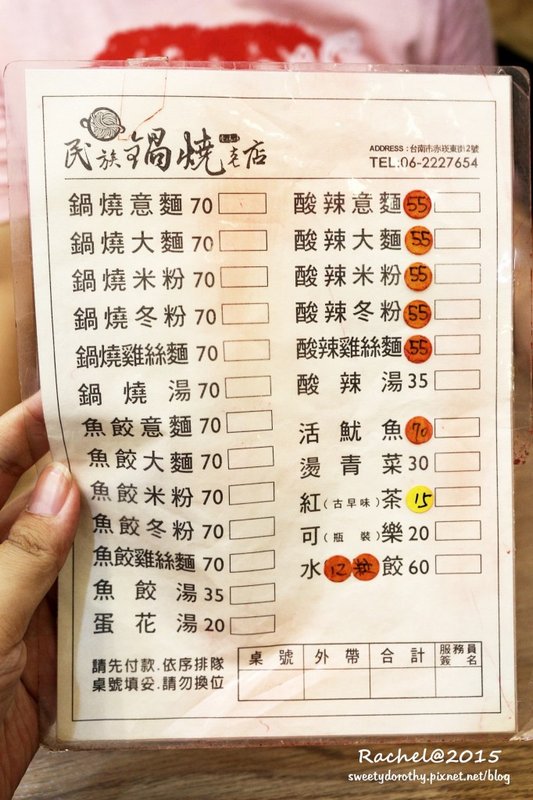 民族鍋燒老店
ADDRESS:台南市赤崁東街2號
TEL:06-2227654
鍋燒意麵 70
鍋燒大麵 70
鍋燒米粉 70
鍋燒冬粉 70
鍋燒雞絲麵 70
鍋燒湯 70
魚餃意麵 70
魚餃大麵 70
魚餃米粉 70
魚餃冬粉 70
魚餃雞絲麵 70
魚餃湯 35
蛋花湯 20
酸辣意麵 55
酸辣大麵 55
酸辣米粉 55
酸辣冬粉 55
酸辣雞絲麵 55
酸辣湯 35
活魷魚 70
燙青菜 30
紅(古早味)茶 15
可(瓶裝)樂 20
水12粒餃 60
請先付款.依序排隊
桌號填妥.請勿換位
桌號 外帶 合計 服務員簽名
Rachel@2015
sweetydorothy.pixnet.net/blog